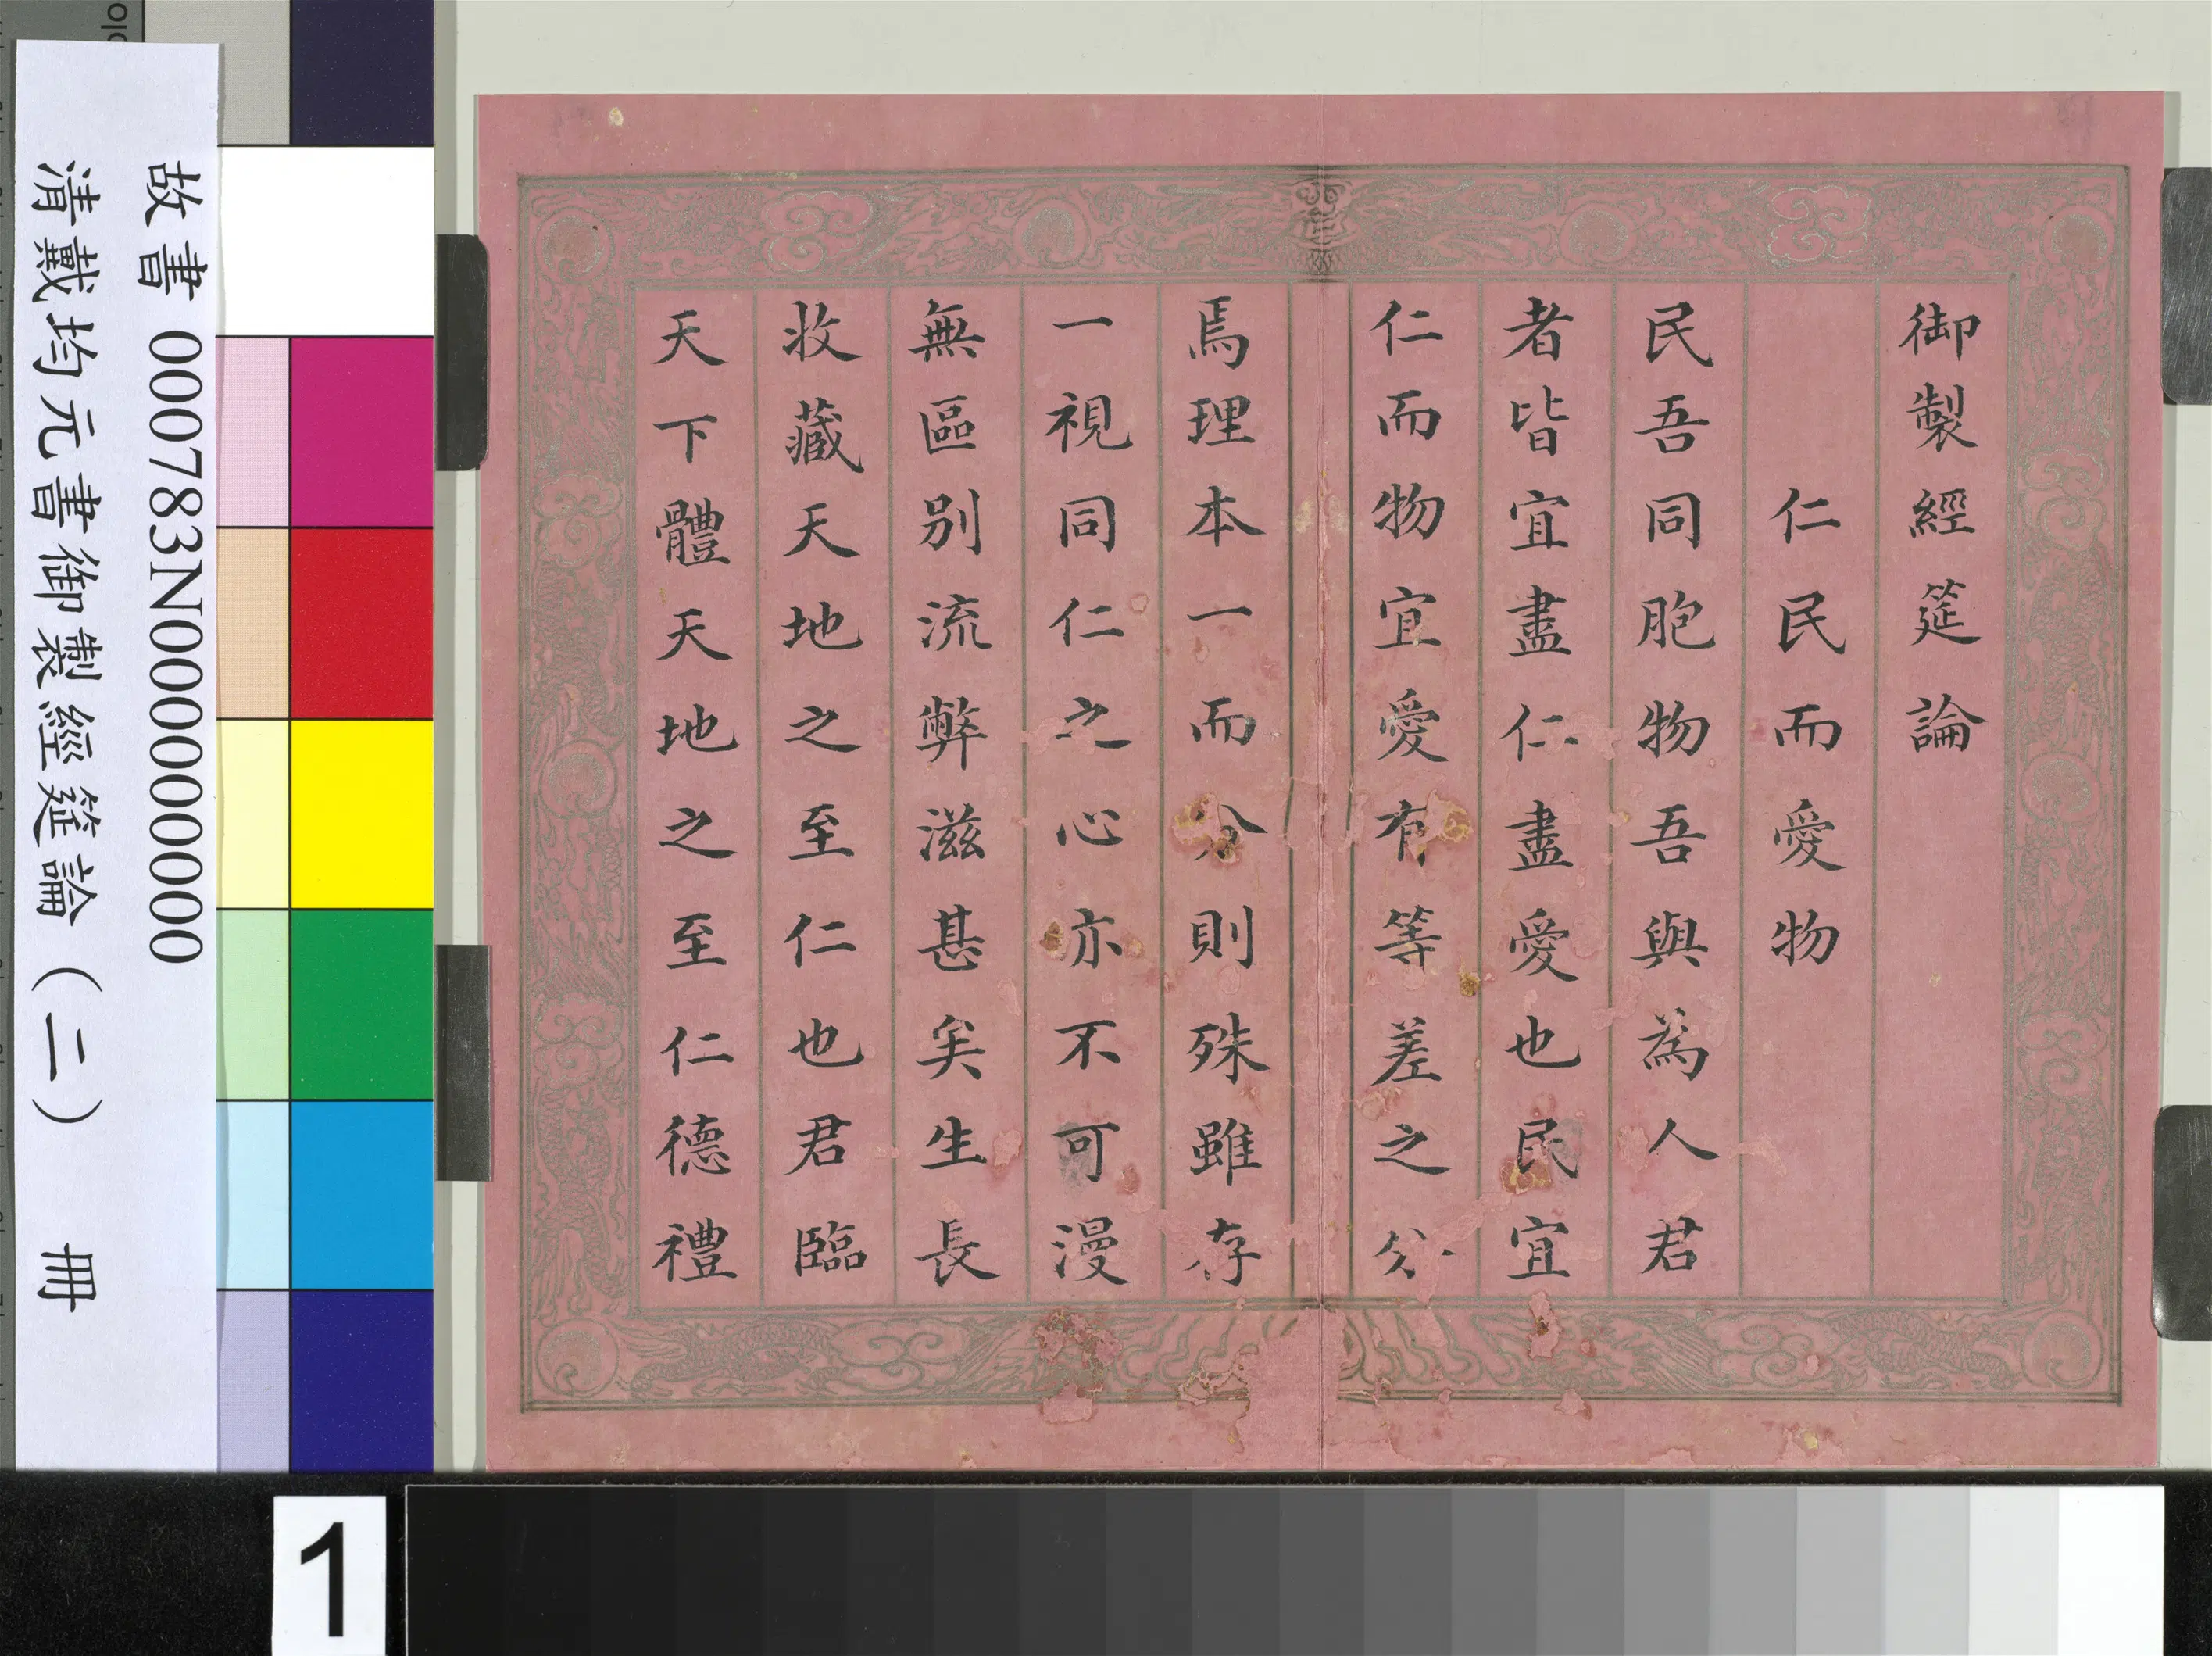 御製經筵論
仁民而愛物
民吾同胞物吾與為人君
者皆宜盡仁盡愛也民宜
仁而物宜愛有等差之分
焉理本一而分則殊雖存
一視同仁之心亦不可漫
無區别流弊滋甚矣生長
收藏天地之至仁也君臨
天下體天地之至仁德禮
故書 000783N000000000
清戴均元書御製經筵論（二） 冊
1